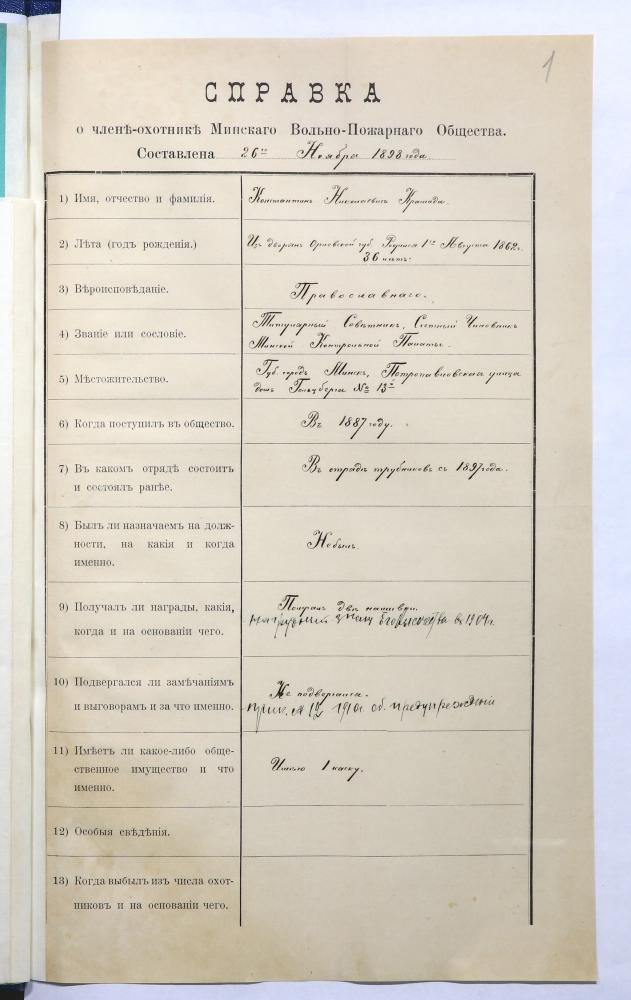 1
СПРАВКА
о членѣ-охотникѣ Минскаго Вольно-Пожарнаго Общества.
Составлена 26го Ноября 1898 года.
1) Имя, отчество и фамилія.
Константинъ Николаевичъ Крашада.
2) Лѣта (годъ рожденія.)
Изъ дворянъ Орловской губ. Родился 1го Августа 1862 г.
36 лѣтъ.
3) Вѣроисповѣданіе.
Православнаго.
4) Званіе или сословіе.
Титулярный Совѣтникъ, Счетный Чиновникъ
Минской Контрольной Палаты.
5) Мѣстожительство.
Губ. городъ Минскъ, Петропавловская улица
домъ Гольцберга № 13й
6) Когда поступилъ въ общество.
Въ 1887 году.
7) Въ какомъ отрядѣ состоитъ
и состоялъ ранѣе.
Въ отрядѣ трубниковъ съ 1897 года.
8) Былъ ли назначаемъ на долж-
ности, на какія и когда
именно.
Не былъ.
9) Получалъ ли награды, какія,
когда и на основаніи чего.
Получалъ двѣ нашивки.
нагрудный знакъ в 1904 г.
10) Подвергался ли замѣчаніямъ
и выговорамъ и за что именно.
Не подвергался.
прик. № 12 1910 г. об. предупрежденіи
11) Имѣетъ ли какое-либо обще-
ственное имущество и что
именно.
Имѣю 1 каску.
12) Особыя свѣдѣнія.
13) Когда выбылъ изъ числа охот-
никовъ и на основаніи чего.